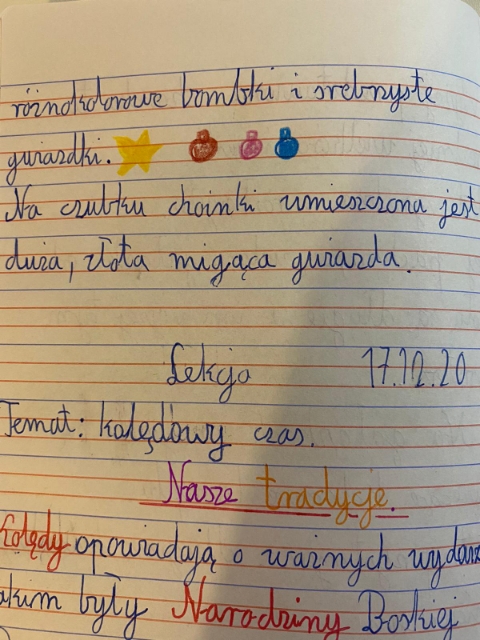 różnokolorowe bombki i srebrzyste
gwiazdki.
Na czubku choinki umieszczona jest
duża, złota migąca gwiazda.
Lekcja 17.12.20
Temat: Kolędowy czas.
Nasze tradycje.
Kolędy opowiadają o ważnych
były Narodziny Boskiej